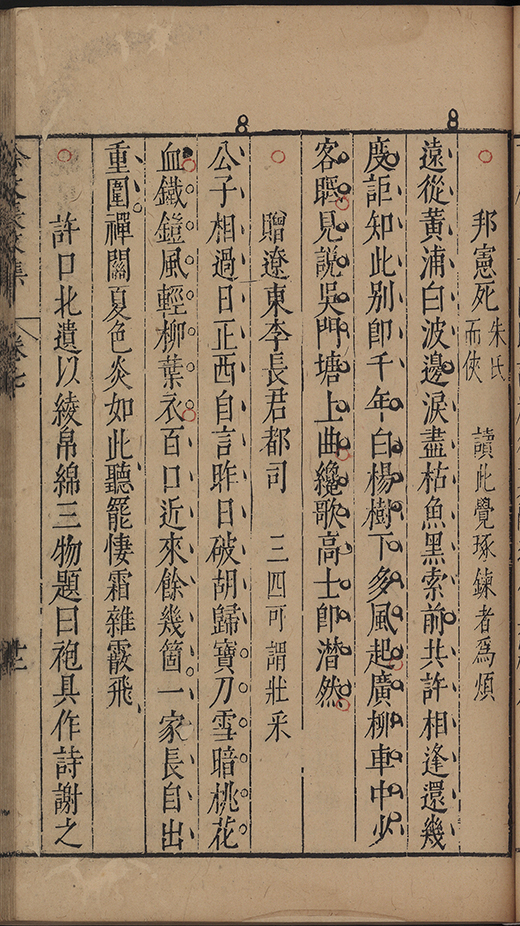 邦憲死 朱氏而俠 讀此覺琢鍊者爲煩
遠從黃浦白波邊淚盡枯魚黑索前共許相逢還幾
度詎知此別卽千年白楊樹下多風起廣柳車中少
客眠見說吳門塘上曲纔歌高士卽潸然
贈遼東李長君都司 三四可謂壯采
公子相過日正西自言昨日破胡歸寶刀雪暗桃花
血鐵鎧風輕柳葉衣百口近來餘幾箇一家長自出
重圍禪關夏色炎如此聽罷悽霜雜霰飛
許口北遺以綾帛綿三物題曰袍具作詩謝之
卷七